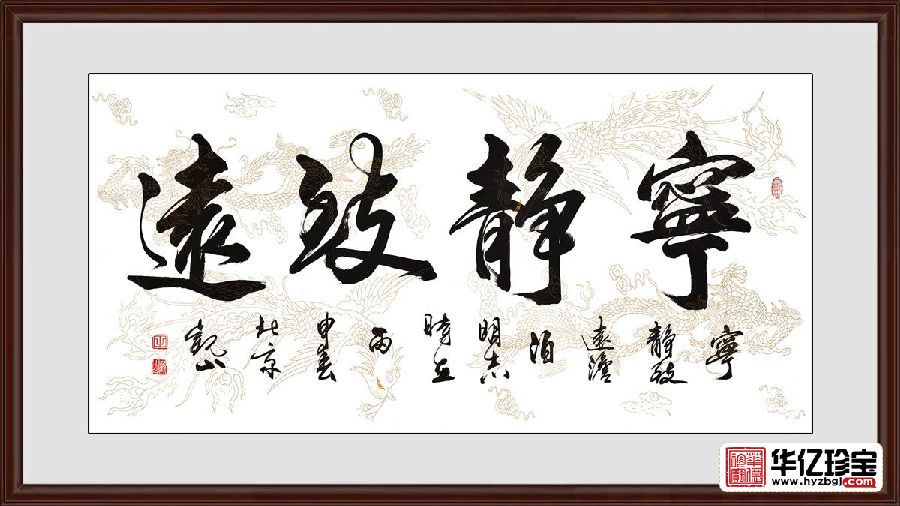 寧静致遠
寧
静致
遠澹
泊
明志
時在
丙
申春
北京
华亿珍宝
www.hyzbgl.com